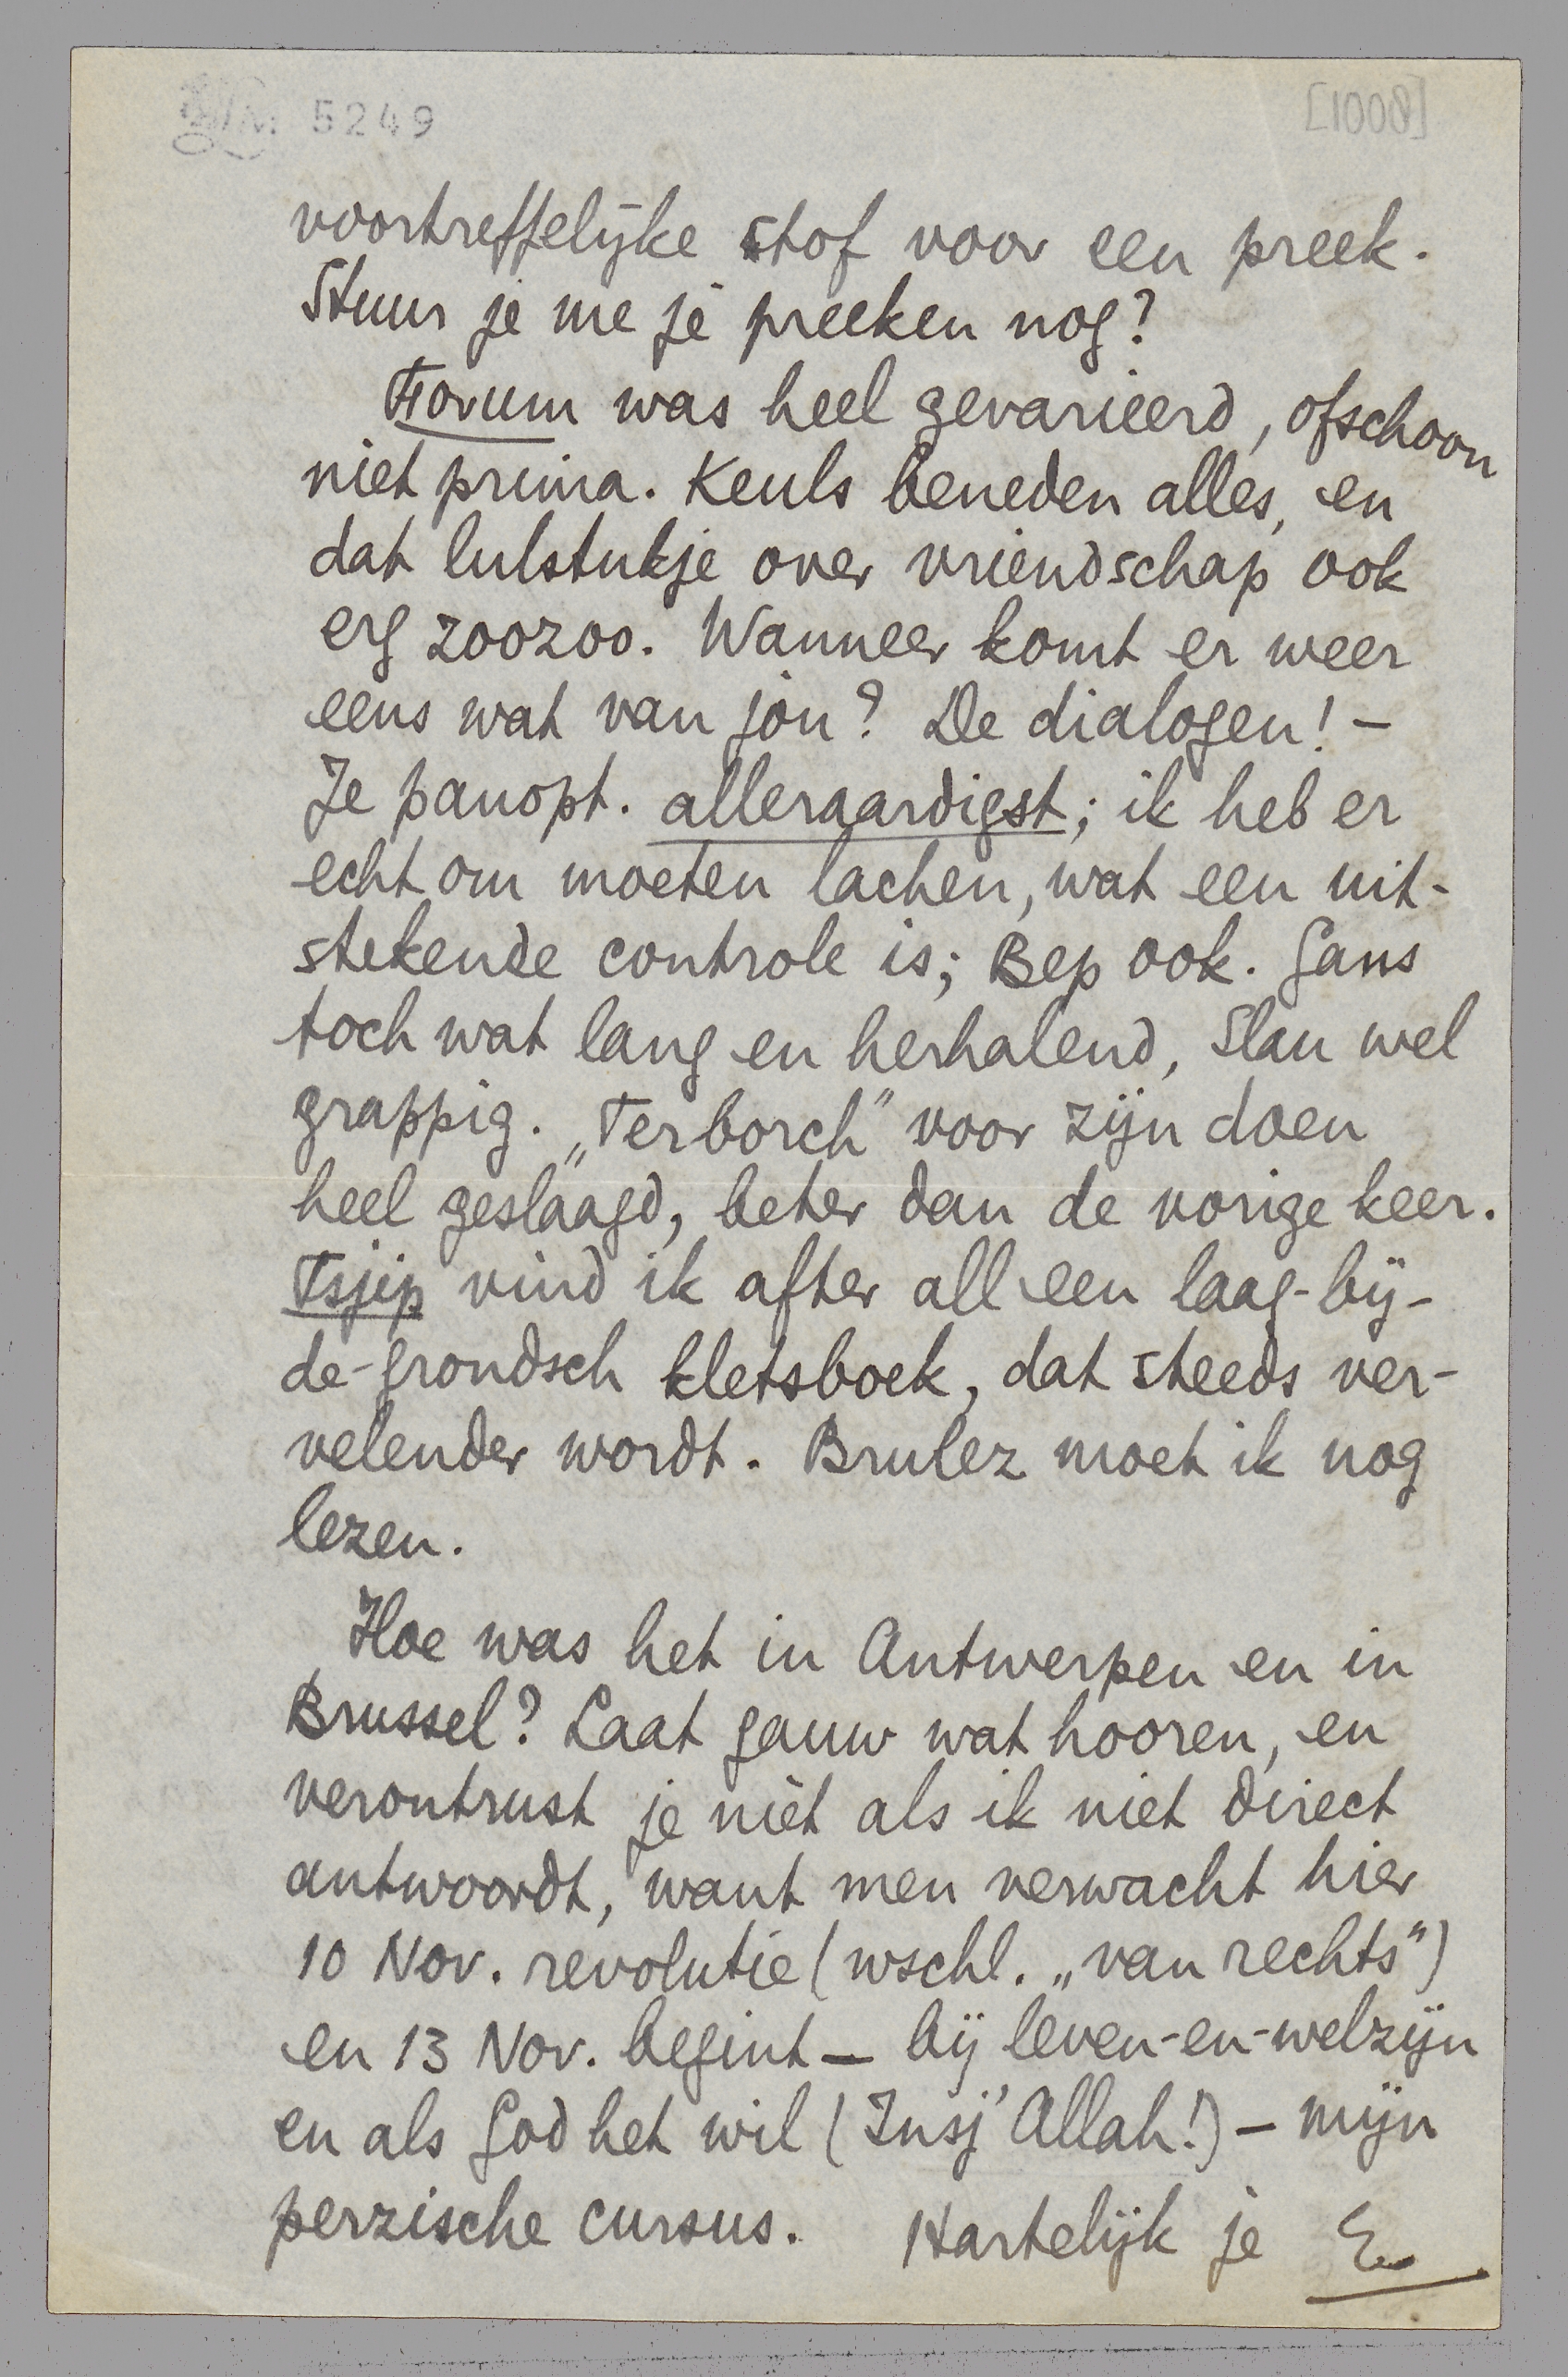 5249
[1008]
voortreffelijke stof voor een preek.
Stuur je me je preeken nog?
Forum was heel gevarieerd, ofschoon
niet prima. Keuls beneden alles, en
dat lulstukje over vriendschap ook
erg zoozoo. Wanneer komt er weer
eens wat van jòu? De dialogen! –
Je panopt. alleraardigst; ik heb er
echt om moeten lachen, wat een uit-
stekende controle is; Bep ook. Gans
toch wat lang en herhalend, Slau wel
grappig. „Terborch” voor zijn doen
heel geslaagd, beter dan de vorige keer.
Tsjip vind ik after all een laag-bij-
de-grondsch kletsboek, dat steeds ver-
velender wordt. Brulez moet ik nog
lezen.
Hoe was het in Antwerpen en in
Brussel? Laat gauw wat hooren, en
verontrust je niet als ik niet direct
antwoordt, want men verwacht hier
10 Nov. revolutie (wschl. „van rechts”)
en 13 Nov. begint – bij leven-en-welzijn
en als God het wil (Insj' Allah!) – mijn
perzische cursus. Hartelijk je E